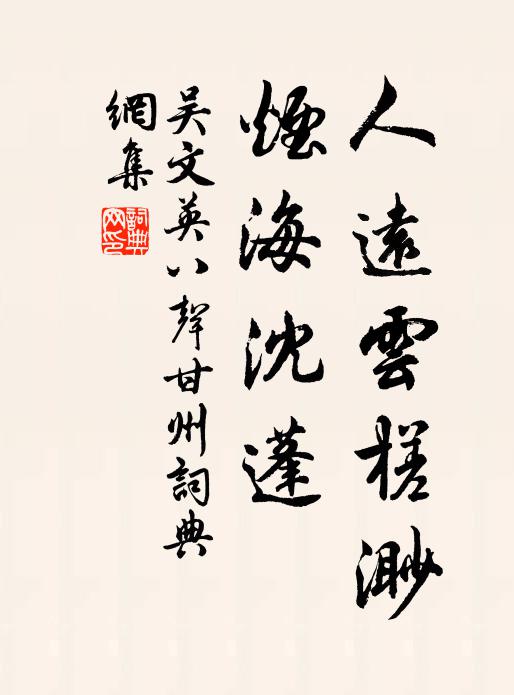 人遠雲槎渺
煙海沈蓬
吳文英八聲甘州詞典
網集
詞典
网印